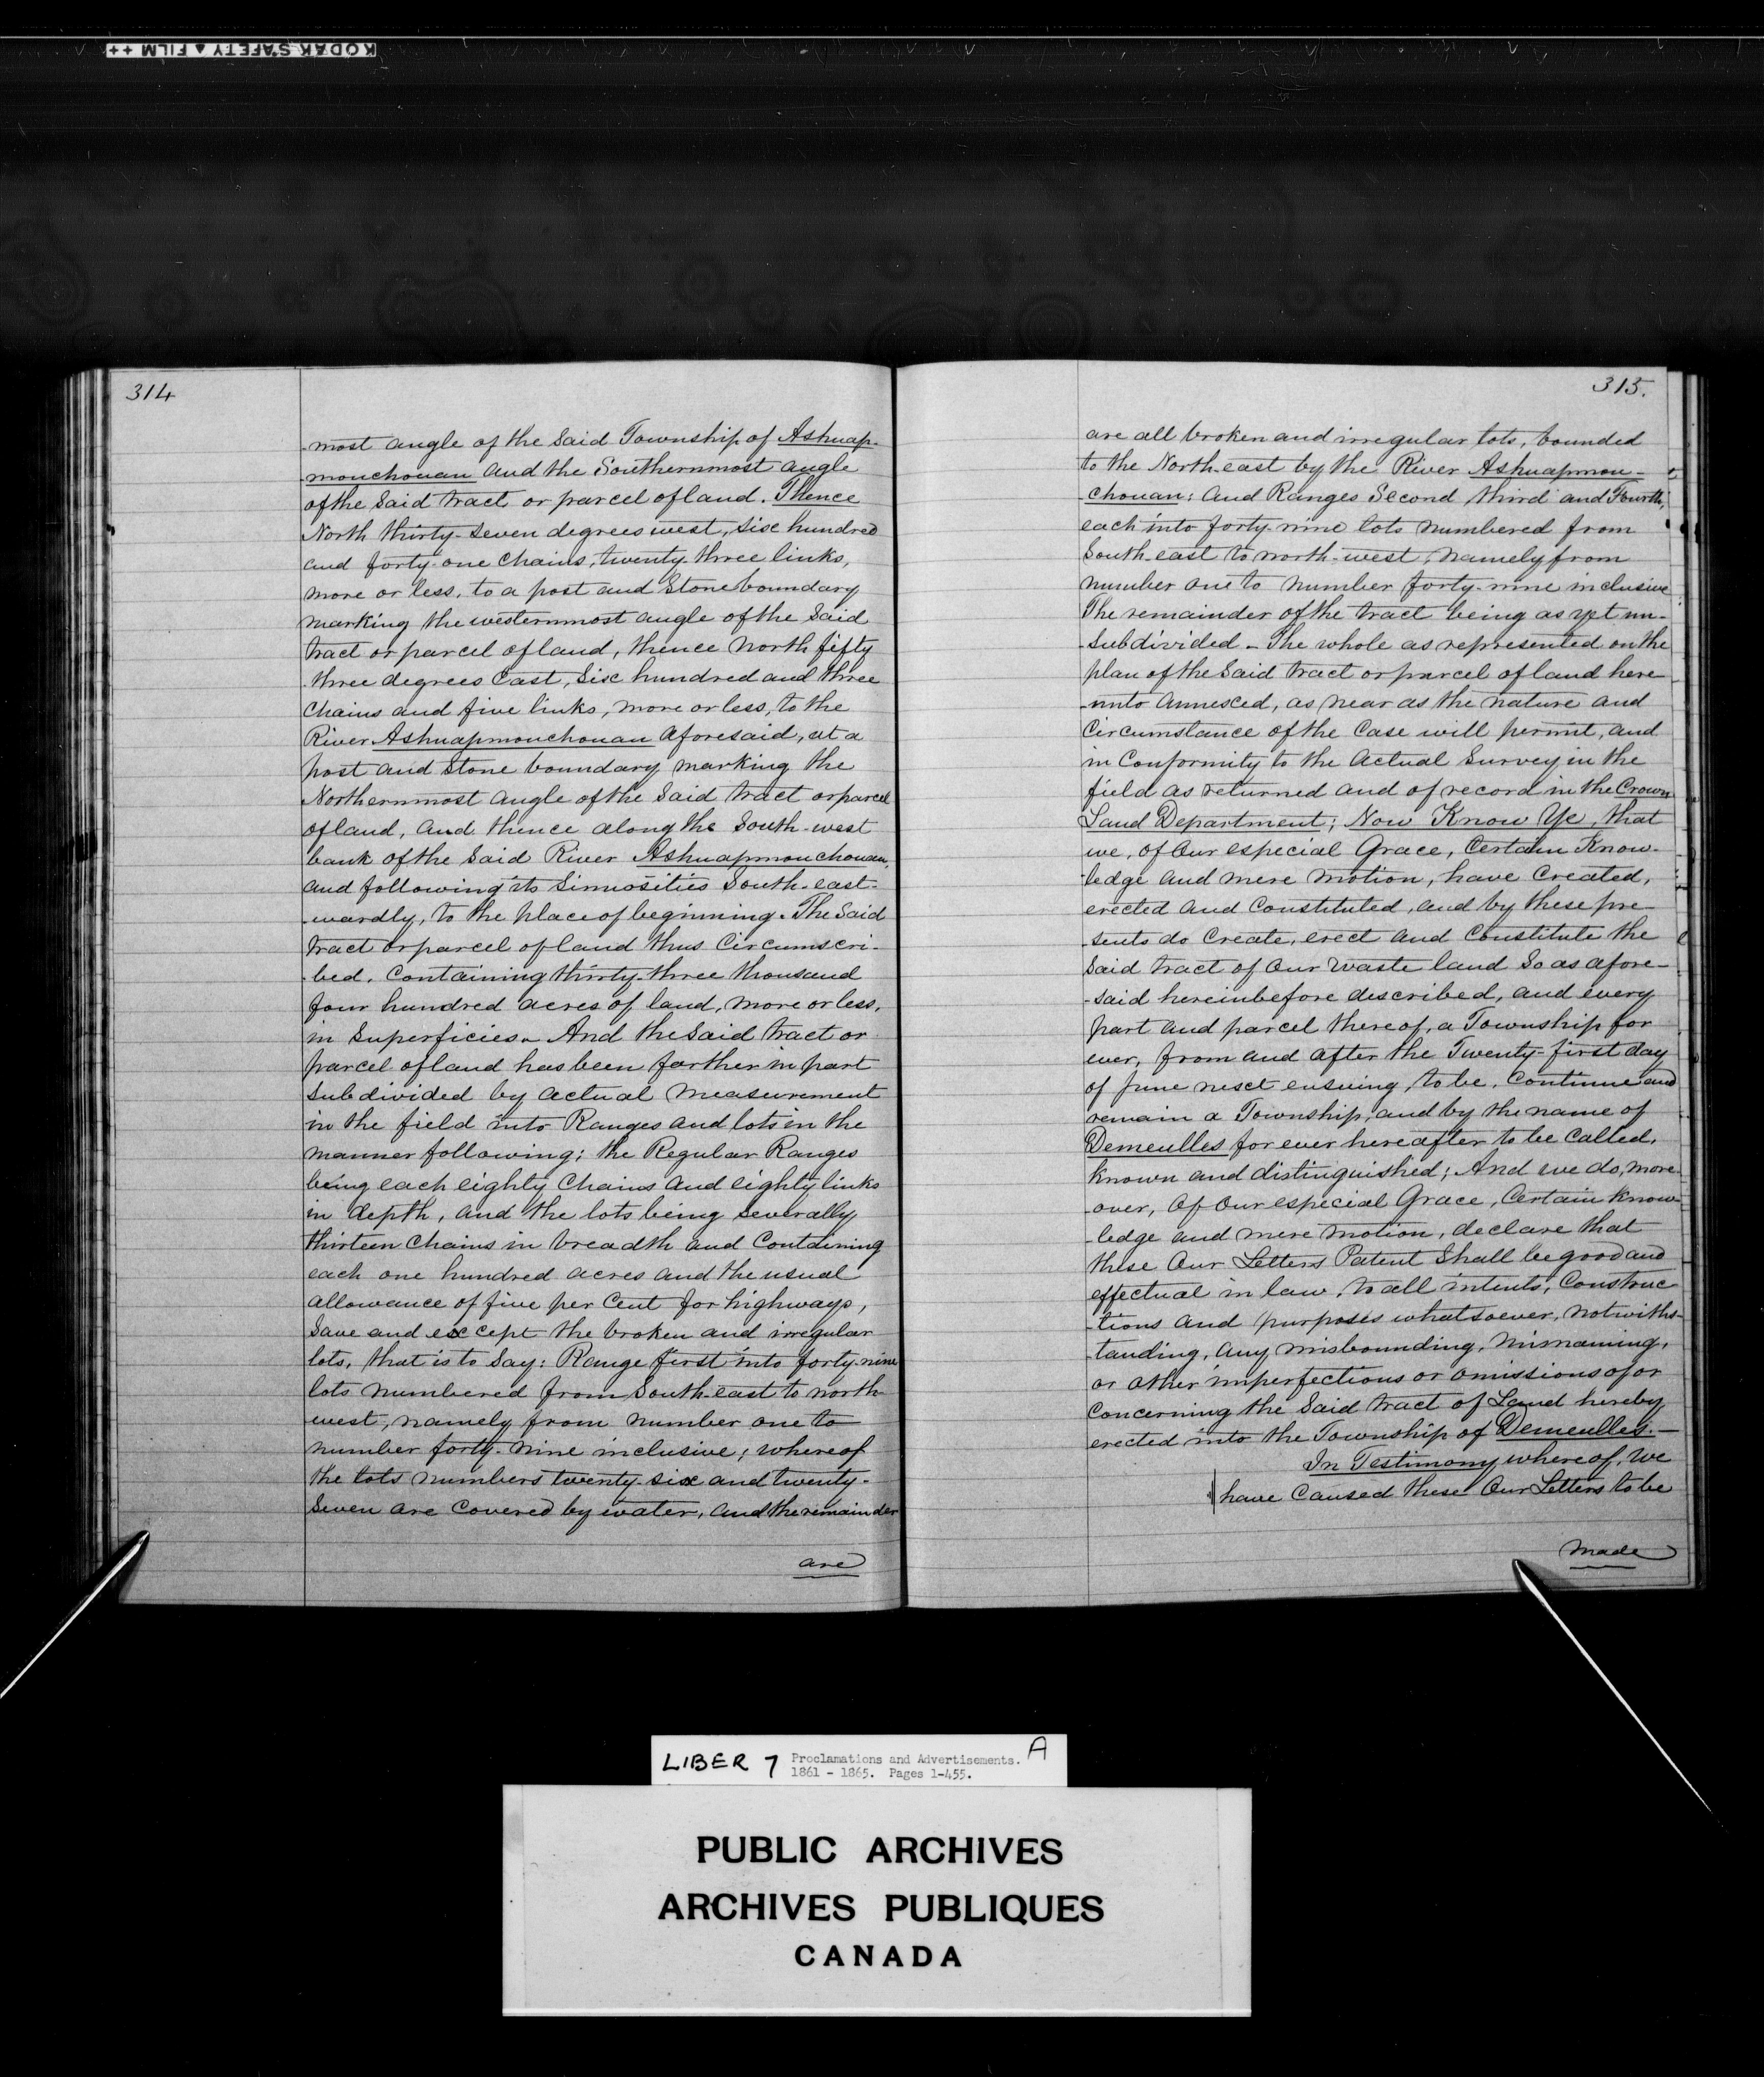 KODAK SAFETY ▲ FILM ++
314
most angle of the Said Township of Ashuap-
mouchouan and the Southernmost angle
of the Said tract or parcel of land. Thence
North thirty-seven degrees west, Six hundred
and forty-one Chains, twenty-three links,
more or less, to a post and Stone boundary
marking the westernmost angle of the Said
tract or parcel of land, thence North fifty
-three degrees East, Six hundred and three
Chains and five links, more or less, to the
River Ashuapmouchouan aforesaid, at a
post and Stone boundary marking the
Northernmost angle of the Said tract or parcel
of land, and thence along the South-west
bank of the Said River Ashuapmouchouan,
and following its Sinuosities South-east-
-wardly, to the place of beginning. The Said
tract or parcel of land thus Circumscri-
-bed, Containing thirty-three thousand
four hundred acres of land, more or less,
in Superficies. And the Said tract or
parcel of land has been farther in part
Subdivided by actual measurement
in the field into Ranges and lots in the
manner following: the Regular Ranges
being each eighty Chains and eighty links
in depth, and the lots being Severally
thirteen Chains in breadth and Containing
each one hundred acres and the usual
allowance of five per Cent for highways,
Save and except the broken and irregular
lots, that is to Say: Range first into forty-nine
lots numbered from South-east to north-
west, namely from number one to
number forty-nine inclusive; whereof
the lots numbers twenty-six and twenty-
Seven are Covered by water, and the remainder
are
315.
are all broken and irregular lots, bounded
to the North-east by the River Ashuapmou-
-chouan: and Ranges Second, third and Fourth,
each into forty-nine lots numbered from
South-east to north-west, namely from
number one to number forty-nine inclusive
The remainder of the tract being as yet un-
-subdivided - The whole as represented on the
plan of the Said tract or parcel of land here
-unto annexed, as near as the nature and
Circumstance of the Case will permit, and
in Conformity to the actual Survey in the
field as returned and of record in the Crown
Land Department; Now Know Ye, that
we, of Our especial Grace, Certain Know-
-ledge and mere motion, have Created,
erected and Constituted, and by these pre-
-sents do Create, erect and Constitute the
Said tract of Our waste land So as afore-
-said hereinbefore described, and every
part and parcel thereof, a Township for
ever, from and after the Twenty-first day
of June next ensuing, to be, Continue and
remain a Township, and by the name of
Demeulles for ever hereafter to be Called,
Known and distinguished; And we do, more-
-over, Of Our especial Grace, Certain Know-
-ledge and mere motion, declare that
these Our Letters Patent Shall be good and
effectual in law, to all intents, Construc-
-tions and purposes whatsoever, notwiths-
-tanding, any misbounding, misnaming,
or other imperfections or omissions of or
Concerning the Said tract of Land hereby
erected into the Township of Demeulles. —
In Testimony whereof, We
have Caused these Our Letters to be
made
LIBER 7 Proclamations and Advertisements. A
1861 - 1865. Pages 1-455.
PUBLIC ARCHIVES
ARCHIVES PUBLIQUES
CANADA